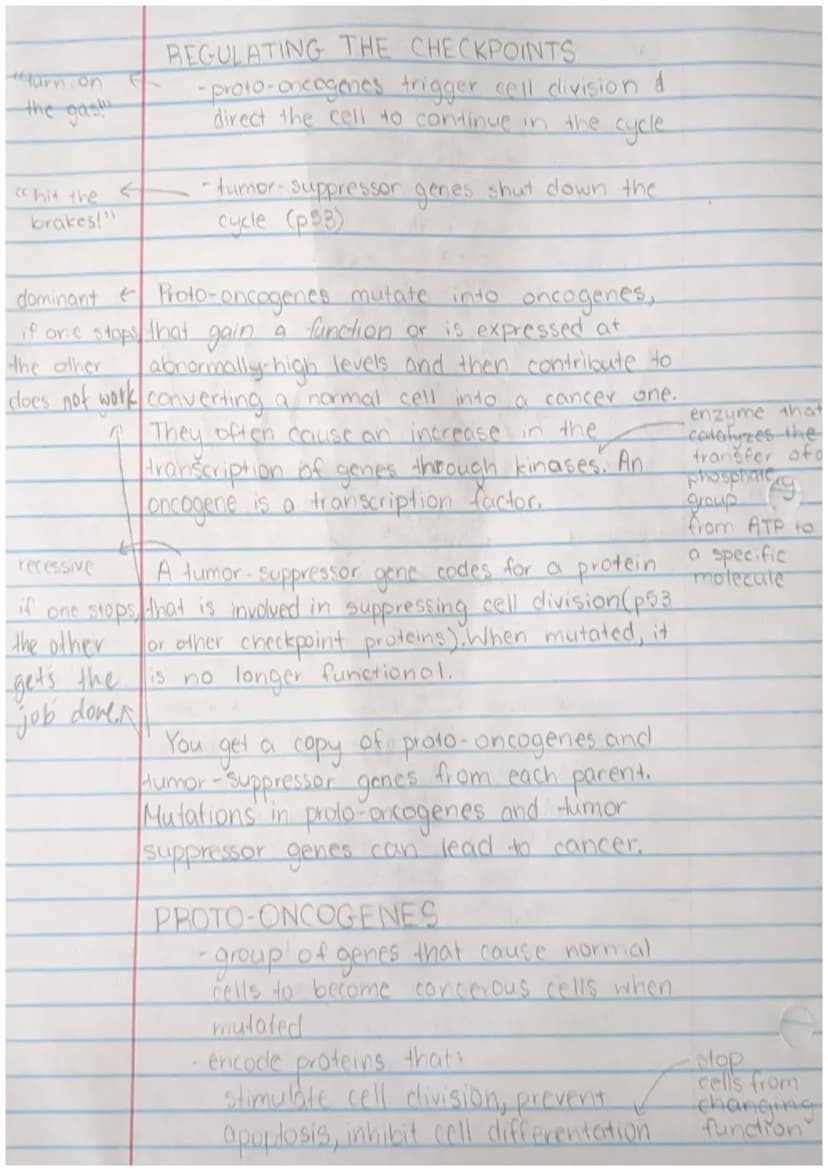 REGULATING THE CHECKPOINTS
"turn on
the gas!"
- proto-oncogenes trigger cell division &
direct the cell to continue in the cycle
"hit the
brakes!"
- tumor-suppressor genes shut down the
cycle (p53)
dominant
if one stops
the other
does not work
Proto-oncogenes mutate into oncogenes,
that gain a function or is expressed at
abnormally-high levels and then contribute to
converting a normal cell into a cancer one.
They often cause an increase in the
transcription of genes through kinases. An
oncogene is a transcription factor.
enzyme that
catalyzes the
transfer of a
phosphate
group
from ATP to
a specific
molecule
recessive
if one stops,
the other
gets the
job done.
A tumor-suppressor gene codes for a protein
that is involved in suppressing cell division (p53
or other checkpoint proteins). When mutated, it
is no longer functional.
You get a copy of proto-oncogenes and
tumor-suppressor genes from each parent.
Mutations in proto-oncogenes and tumor
suppressor genes can lead to cancer.
PROTO-ONCOGENES
- group of genes that cause normal
cells to become cancerous cells when
mutated
- encode proteins that:
stimulate cell division, prevent
apoptosis, inhibit cell differentation
stop
cells from
changing
function